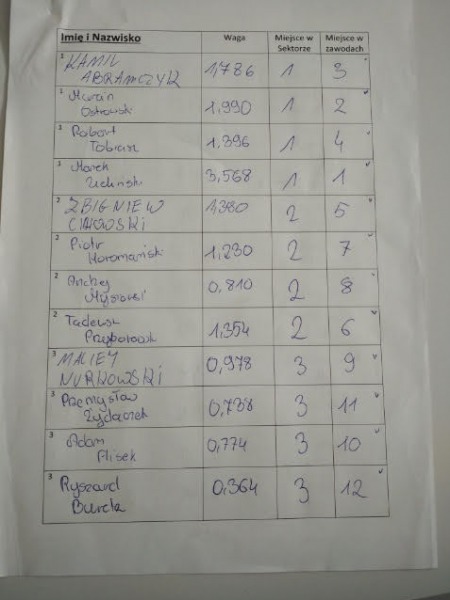 Imię i Nazwisko Waga Miejsce w Sektorze Miejsce w zawodach
1 KAMIL
ABRAMCZYK 1,786 1 3
1 Marcin
Ostrowski 1,990 1 2
1 Robert
Tobiasz 1,396 1 4
1 Marek
3,568 1 1
2 ZBIGNIEW
1,380 2 5
2 Piotr
Koromański 1,230 2 7
2 Andrzej
0,810 2 8
2 Tadeusz
1,354 2 6
3 MACIEJ
NURKOWSKI 0,978 3 9
3 Przemysław
0,738 3 11
3 Adam
Plisek 0,774 3 10
3 Ryszard
Burda 0,364 3 12